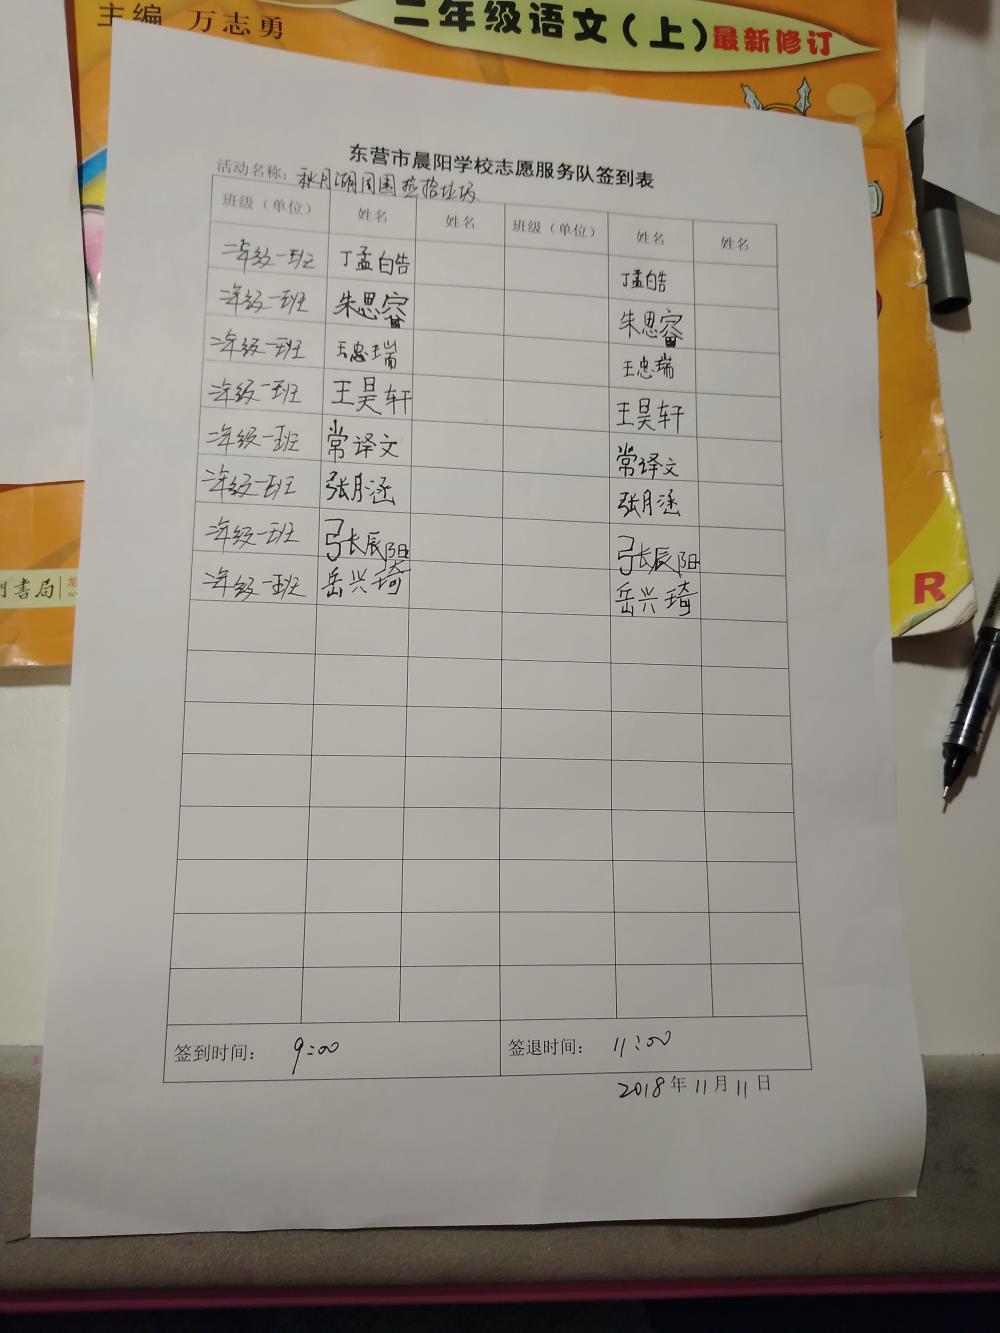 主编 万志勇
二年级语文(上)最新修订
东营市晨阳学校志愿服务队签到表
活动名称：秋月湖周围捡拾垃圾
班级（单位） 姓名 姓名 班级（单位） 姓名 姓名
二年级一班 丁孟皓 丁孟皓
二年级一班 朱思睿 朱思睿
二年级一班 王忠瑞 王忠瑞
二年级一班 王昊轩 王昊轩
二年级一班 常译文 常译文
二年级一班 张月涵 张月涵
二年级一班 张辰阳 张辰阳
二年级一班 岳兴琦 岳兴琦
門書局
R
签到时间： 9:00 签退时间： 11:00
2018年11月11日